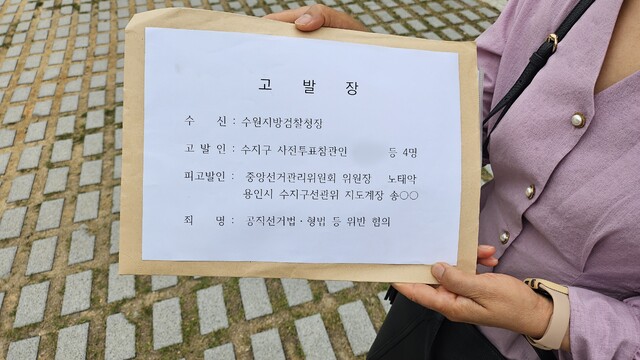 고 발 장
수 신 : 수원지방검찰청장
고 발 인 : 수지구 사전투표참관인 등 4명
피고발인 : 중앙선거관리위원회 위원장 노태악
용인시 수지구선관위 지도계장 송○○
죄 명 : 공직선거법·형법 등 위반 혐의